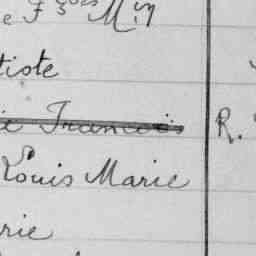 e Fçois Min
tiste
ie Francois R.
Louis Marie
rie